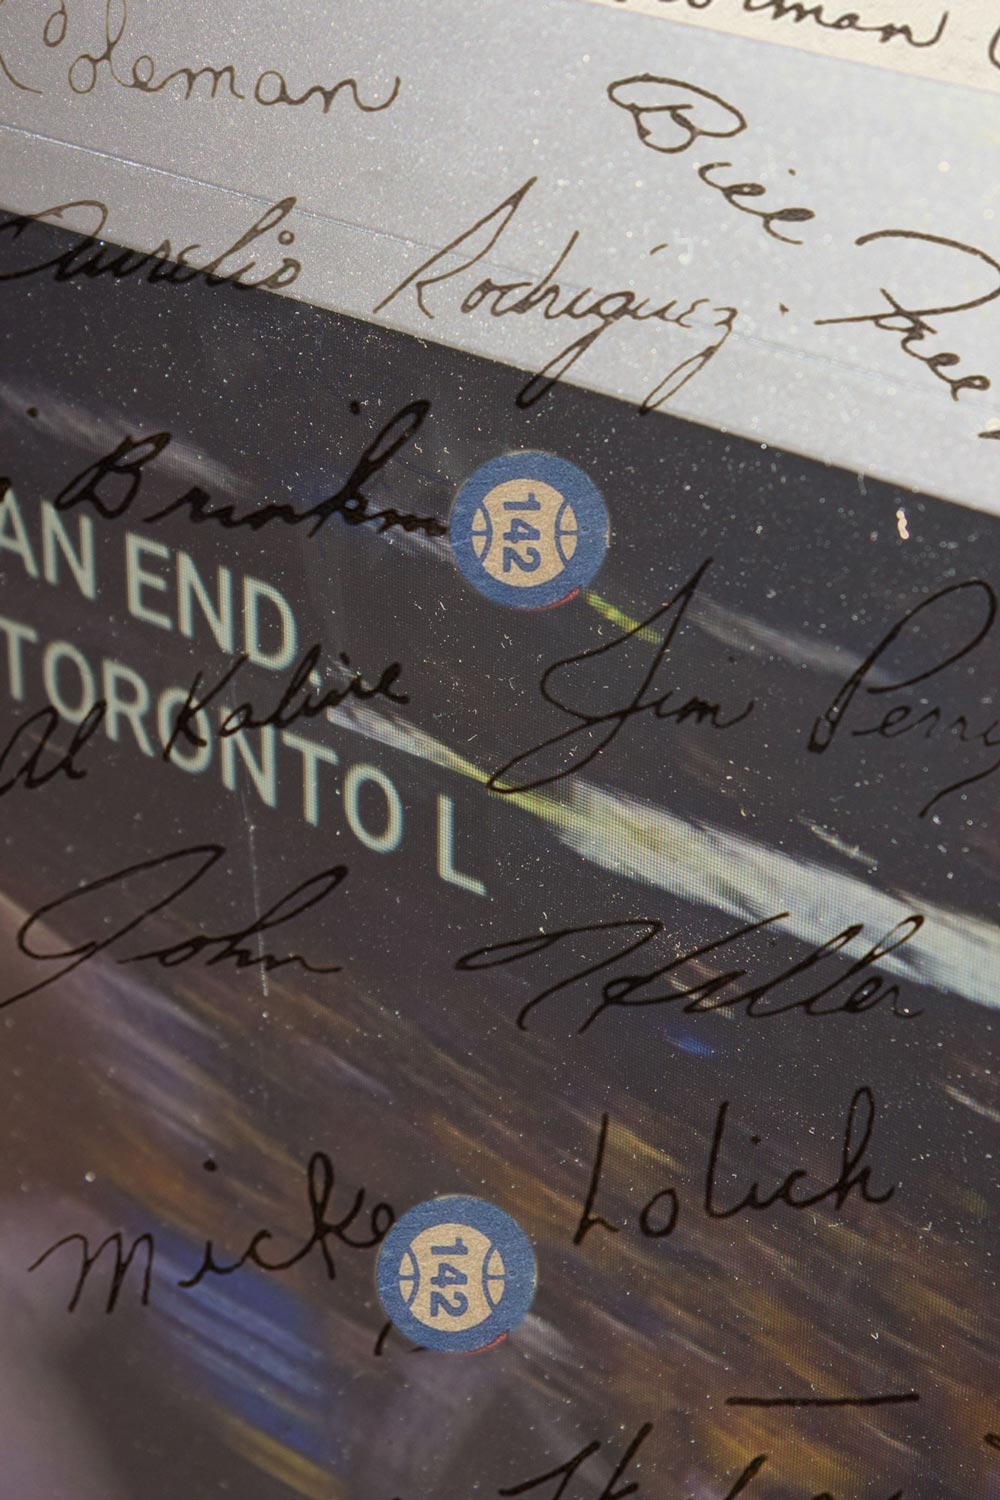 Norman
Coleman
Bill Free
Aurelio Rodriguez
Brinkm
142
AN END.
TORONTO L
Al Kaline
Jim Perry
John Hiller
Mickey Lolich
142